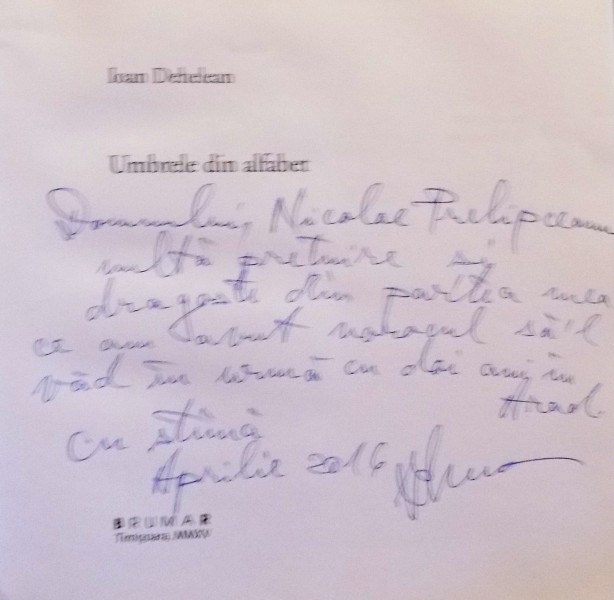 Ioan Dehelean
Umbrele din alfabet
Domnului, Nicolae Prelipceanu
multă prețuire și
dragoste din partea mea
ce am avut norocul să-l
văd în urmă cu doi ani în
Arad.
Cu stimă
Aprilie 2016
BRUMAR
Timișoara, MMXV